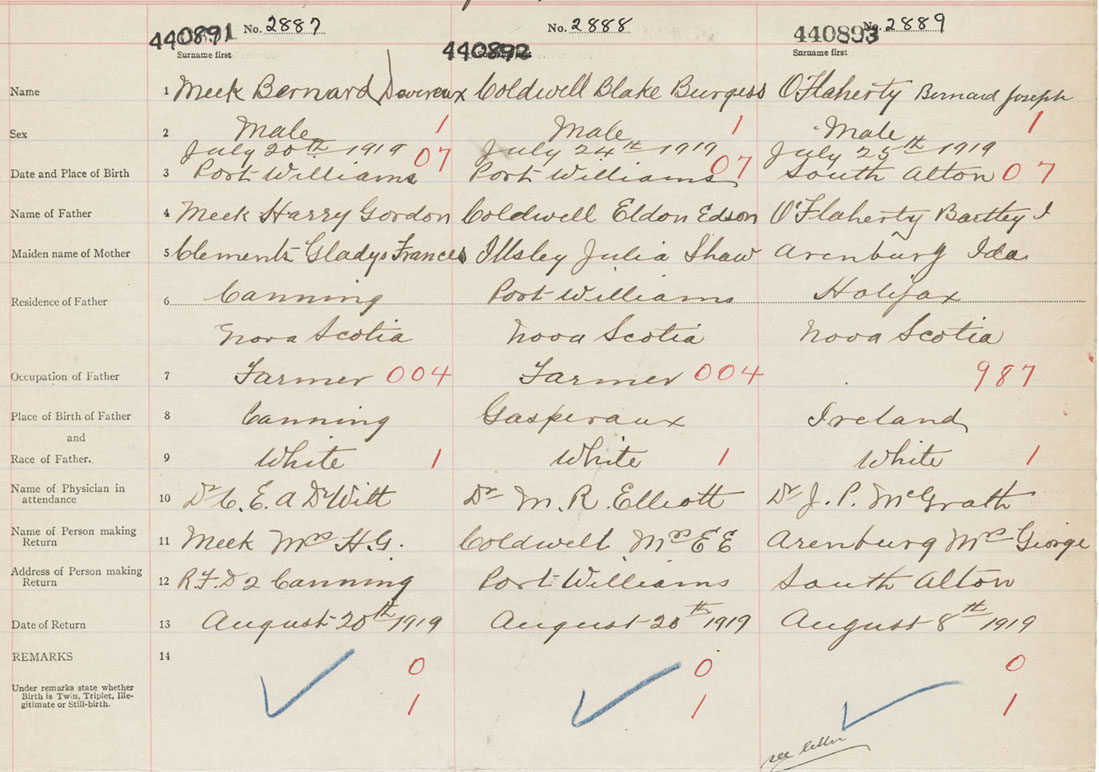 440891 No. 2887 No. 2888 440893 No. 2889
Surname first 440892 Surname first
Name 1 Meek Bernard Devereux Coldwell Blake Burgess O'Flaherty Bernard Joseph
Sex 2 Male 1 Male 1 Male 1
July 20th 1919 07 July 24th 1919 07 July 25th 1919
Date and Place of Birth 3 Port Williams Port Williams South Alton 07
Name of Father 4 Meek Harry Gordon Coldwell Eldon Edson O'Flaherty Bartley J
Maiden name of Mother 5 Clements Gladys Frances Illsley Julia Shaw Arenburg Ida
Residence of Father 6 Canning Port Williams Halifax
Nova Scotia Nova Scotia Nova Scotia
Occupation of Father 7 Farmer 004 Farmer 004 987
Place of Birth of Father 8 Canning Gasperaux Ireland
and
Race of Father. 9 White 1 White 1 White 1
Name of Physician in
attendance 10 Dr C. E. A DeWitt Dr M. R. Elliott Dr J. P. McGrath
Name of Person making
Return 11 Meek Mrs H.G. Coldwell Mrs E E Arenburg Mrs George
Address of Person making
Return 12 R.F.D 2 Canning Port Williams South Alton
Date of Return 13 August 20th 1919 August 20th 1919 August 8th 1919
REMARKS 14 0 0 0
Under remarks state whether
Birth is Twin, Triplet, Ille-
gitimate or Still-birth. 1 1 1
see letter